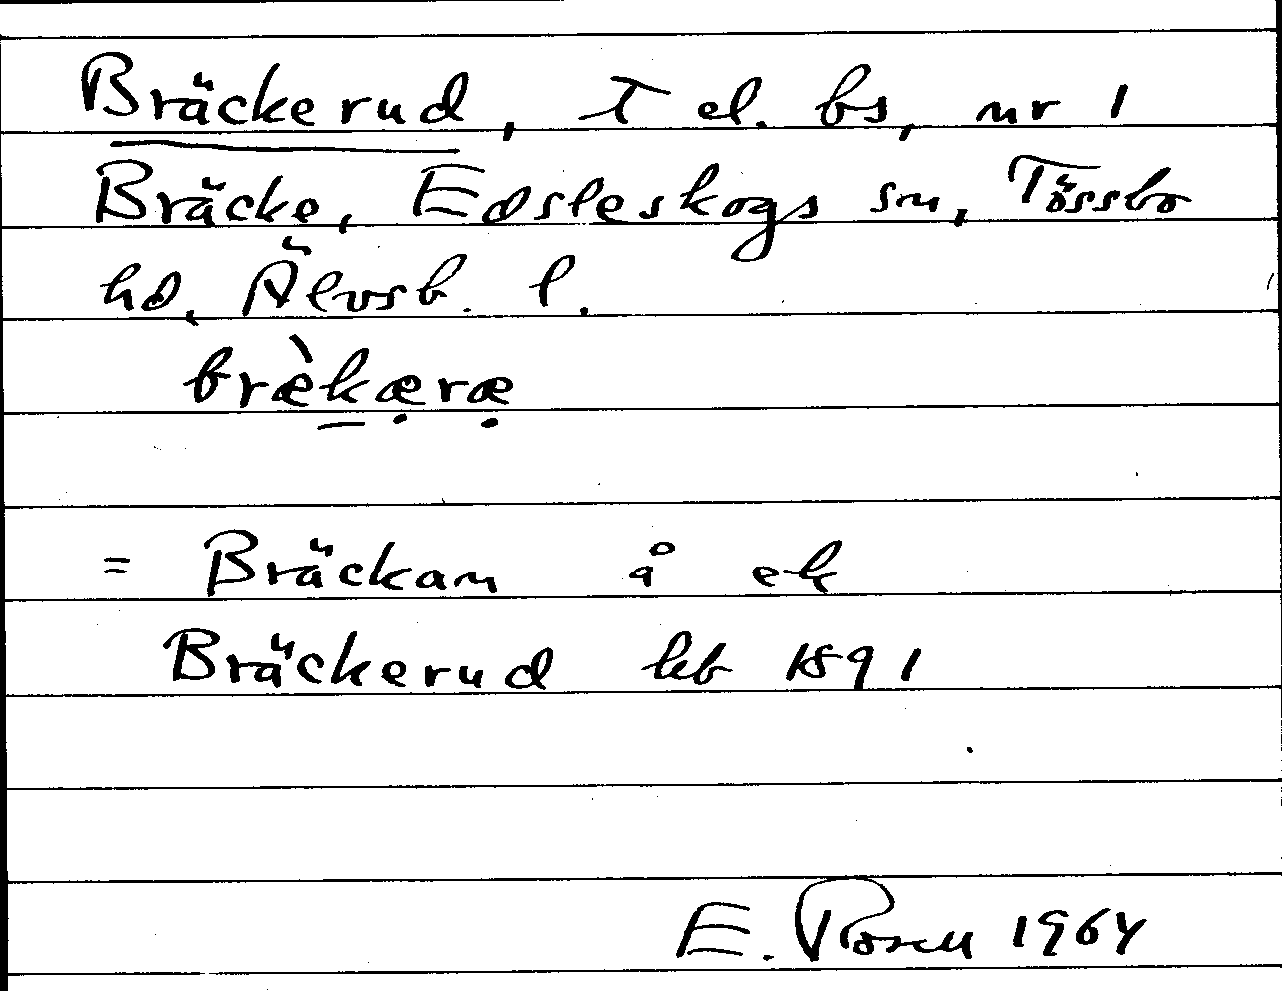 Bräckerud, T el. bs, nr 1
Bräcke, Edsleskogs sn, Tössbo
hd, Älvsb. l.
bræ̀kæ̣ræ̣
= Bräckan å ek
Bräckerud hb 1891
E. Rosell 1964